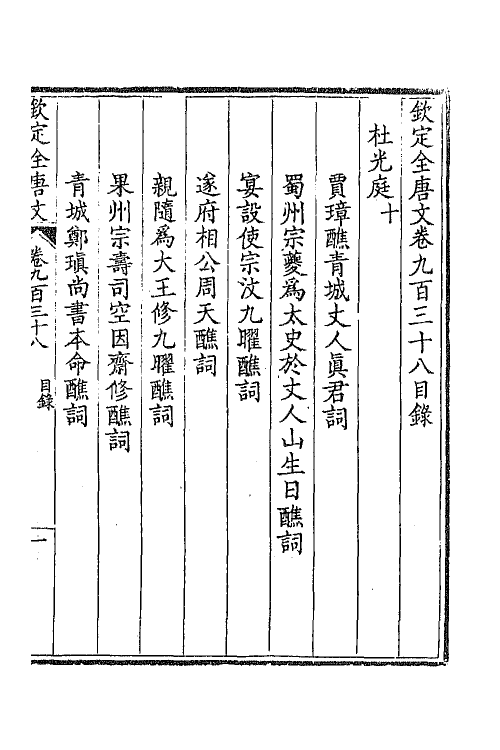 欽定全唐文卷九百三十八目錄
杜光庭十
賈璋醮青城丈人眞君詞
蜀州宗夔爲太史於丈人山生日醮詞
宴設使宗汶九曜醮詞
遂府相公周天醮詞
親隨爲大王修九曜醮詞
果州宗壽司空因齋修醮詞
青城鄭瑱尚書本命醮詞
欽定全唐文 卷九百三十八 目錄 一